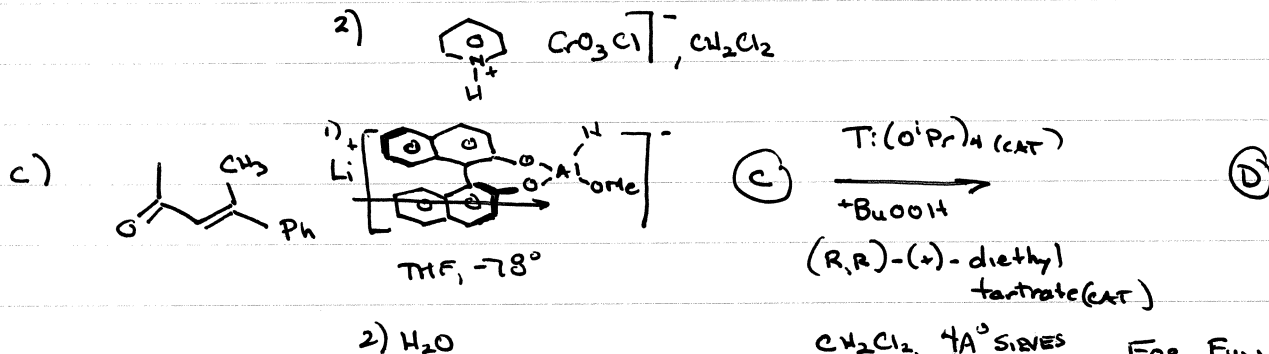 2) N + H CrO3Cl]⁻, CH2Cl2
c) O CH3 Ph
1) Li + [ O O Al H OMe ]⁻
THF, -78°
2) H2O
C
Ti(OⁱPr)4 (CAT)
ᵗBuOOH
(R,R)-(+)-diethyl
tartrate (CAT)
CH2Cl2, 4A° SIEVES
D
FOR FULL